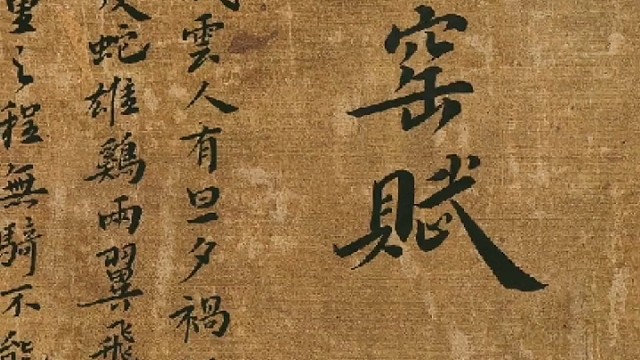 窑賦
雲人有旦夕禍
蛇雄鷄兩翼飛
里之程無騎不能